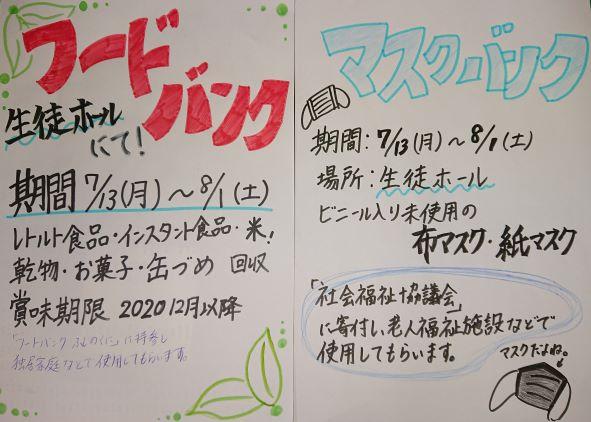 フードバンク
生徒ホール
にて!
期間 7/13(月)～8/1(土)
レトルト食品・インスタント食品・米!
乾物・お菓子・缶づめ 回収
賞味期限 2020 12月以降
「フードバンク ふじのくに」に持参し
独居家庭などで使用してもらいます。
マスクバンク
期間:7/13(月)～8/1(土)
場所:生徒ホール
ビニール入り未使用の
布マスク・紙マスク
「社会福祉協議会」
に寄付し、老人福祉施設などで
使用してもらいます。
マスクだよね。